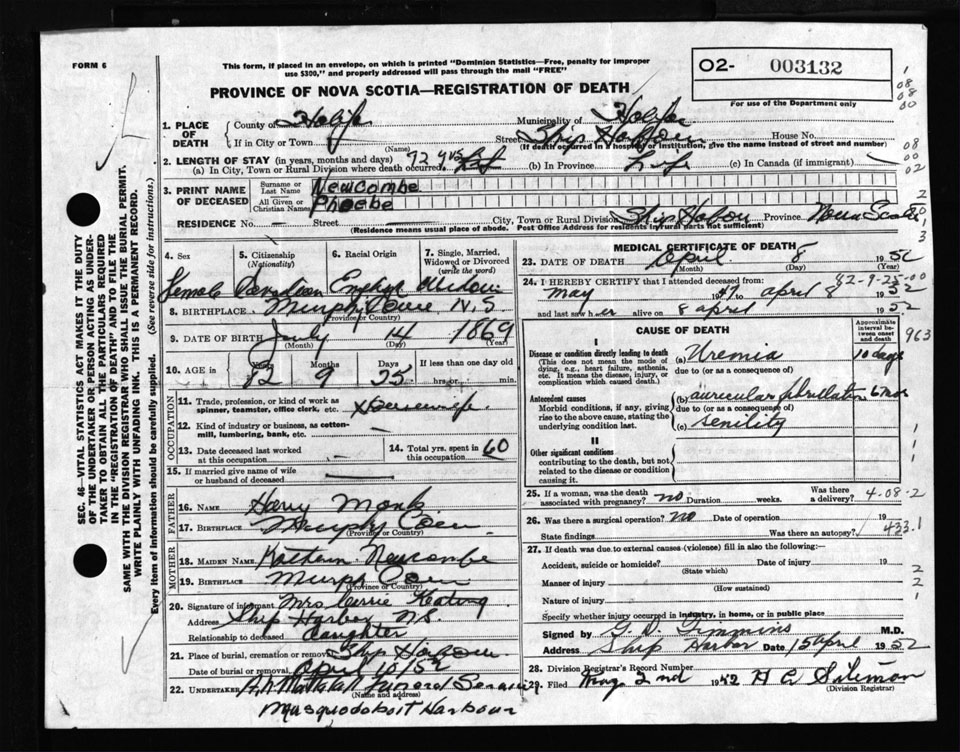 FORM 6
This form, if placed in an envelope, on which is printed "Dominion Statistics—Free, penalty for improper
use $300," and properly addressed will pass through the mail "FREE"
PROVINCE OF NOVA SCOTIA—REGISTRATION OF DEATH
O2- 003132
For use of the Department only
1. PLACE OF DEATH
County of Halifax Municipality of Halifax
If in City or Town (Name) Street Ship Harbour House No.
(If death occurred in a hospital or institution, give the name instead of street and number)
2. LENGTH OF STAY (in years, months and days)
(a) In City, Town or Rural Division where death occurred 72 yrs (b) In Province Life (c) In Canada (if immigrant)
3. PRINT NAME OF DECEASED
Surname or Last Name Newcombe
All Given or Christian Names Phoebe
RESIDENCE No. — Street — City, Town or Rural Division Ship Harbour Province Nova Scotia
(Residence means usual place of abode. Post Office Address for residents in rural parts not sufficient)
4. Sex 5. Citizenship (Nationality) 6. Racial Origin 7. Single, Married, Widowed or Divorced (write the word)
Female Canadian English Widow
8. BIRTHPLACE Murphy Cove N.S
(Province or Country)
9. DATE OF BIRTH July 14 1869
(Month) (Day) (Year)
10. AGE in Years Months Days If less than one day old
9 25 hrs. or min.
OCCUPATION
11. Trade, profession, or kind of work as
spinner, teamster, office clerk, etc. Housewife
12. Kind of industry or business, as cotton-
mill, lumbering, bank, etc. —
13. Date deceased last worked
at this occupation — 14. Total yrs. spent in this occupation 60
15. If married give name of wife
or husband of deceased —
FATHER
16. NAME Harry Monk
17. BIRTHPLACE Murphy Cove
(Province or Country)
MOTHER
18. MAIDEN NAME Newcombe
19. BIRTHPLACE Murph Cove
(Province or Country)
20. Signature of informant Mrs. Keating
Address Ship Harbor N.S.
Relationship to deceased daughter
21. Place of burial, cremation or removal Ship Harbour
Date of burial or removal April 10/52
22. UNDERTAKER Funeral Service
(Name and address)
Musquodoboit Harbour
MEDICAL CERTIFICATE OF DEATH
23. DATE OF DEATH April 8 1952
(Month) (Day) (Year)
24. I HEREBY CERTIFY that I attended deceased from
May 19 to April 8 1952
and last saw her alive on 8 april 1952
CAUSE OF DEATH
Approximate interval between onset and death
I
Disease or condition directly leading to death (a) Uremia 10 days
(This does not mean the mode of
dying, e.g., heart failure, asthenia,
etc. It means the disease, injury, or
complication which caused death.)
due to (or as a consequence of)
Antecedent causes (b) auricular fibrillation 6 mos
Morbid conditions, if any, giving
rise to the above cause, stating the
underlying condition last.
due to (or as a consequence of)
(c) senility
II
Other significant conditions
contributing to the death, but not
related to the disease or condition
causing it.
25. If a woman, was the death
associated with pregnancy? no Duration weeks. Was there a delivery?
4-08-2
26. Was there a surgical operation? no Date of operation 19
State findings Was there an autopsy?
433.1
27. If death was due to external causes (violence) fill in also the following:—
Accident, suicide or homicide? (State which) Date of injury 19
Manner of injury (How sustained)
Nature of injury
Specify whether injury occurred in industry, in home, or in public place
Signed by Timmins M.D.
Address Ship Harbor Date 15 April 1952
28. Division Registrar's Record Number
29. Filed 2nd 1952 Siteman
(Division Registrar)
963
SEC. 46—VITAL STATISTICS ACT MAKES IT THE DUTY
OF THE UNDERTAKER OR PERSON ACTING AS UNDER-
TAKER TO OBTAIN ALL THE PARTICULARS REQUIRED
IN THE "REGISTRATION OF DEATH" AND TO FILE THE
SAME WITH THE DIVISION REGISTRAR WHO SHALL ISSUE THE BURIAL PERMIT.
WRITE PLAINLY WITH UNFADING INK. THIS IS A PERMANENT RECORD.
Every item of information should be carefully supplied. (See reverse side for instructions.)